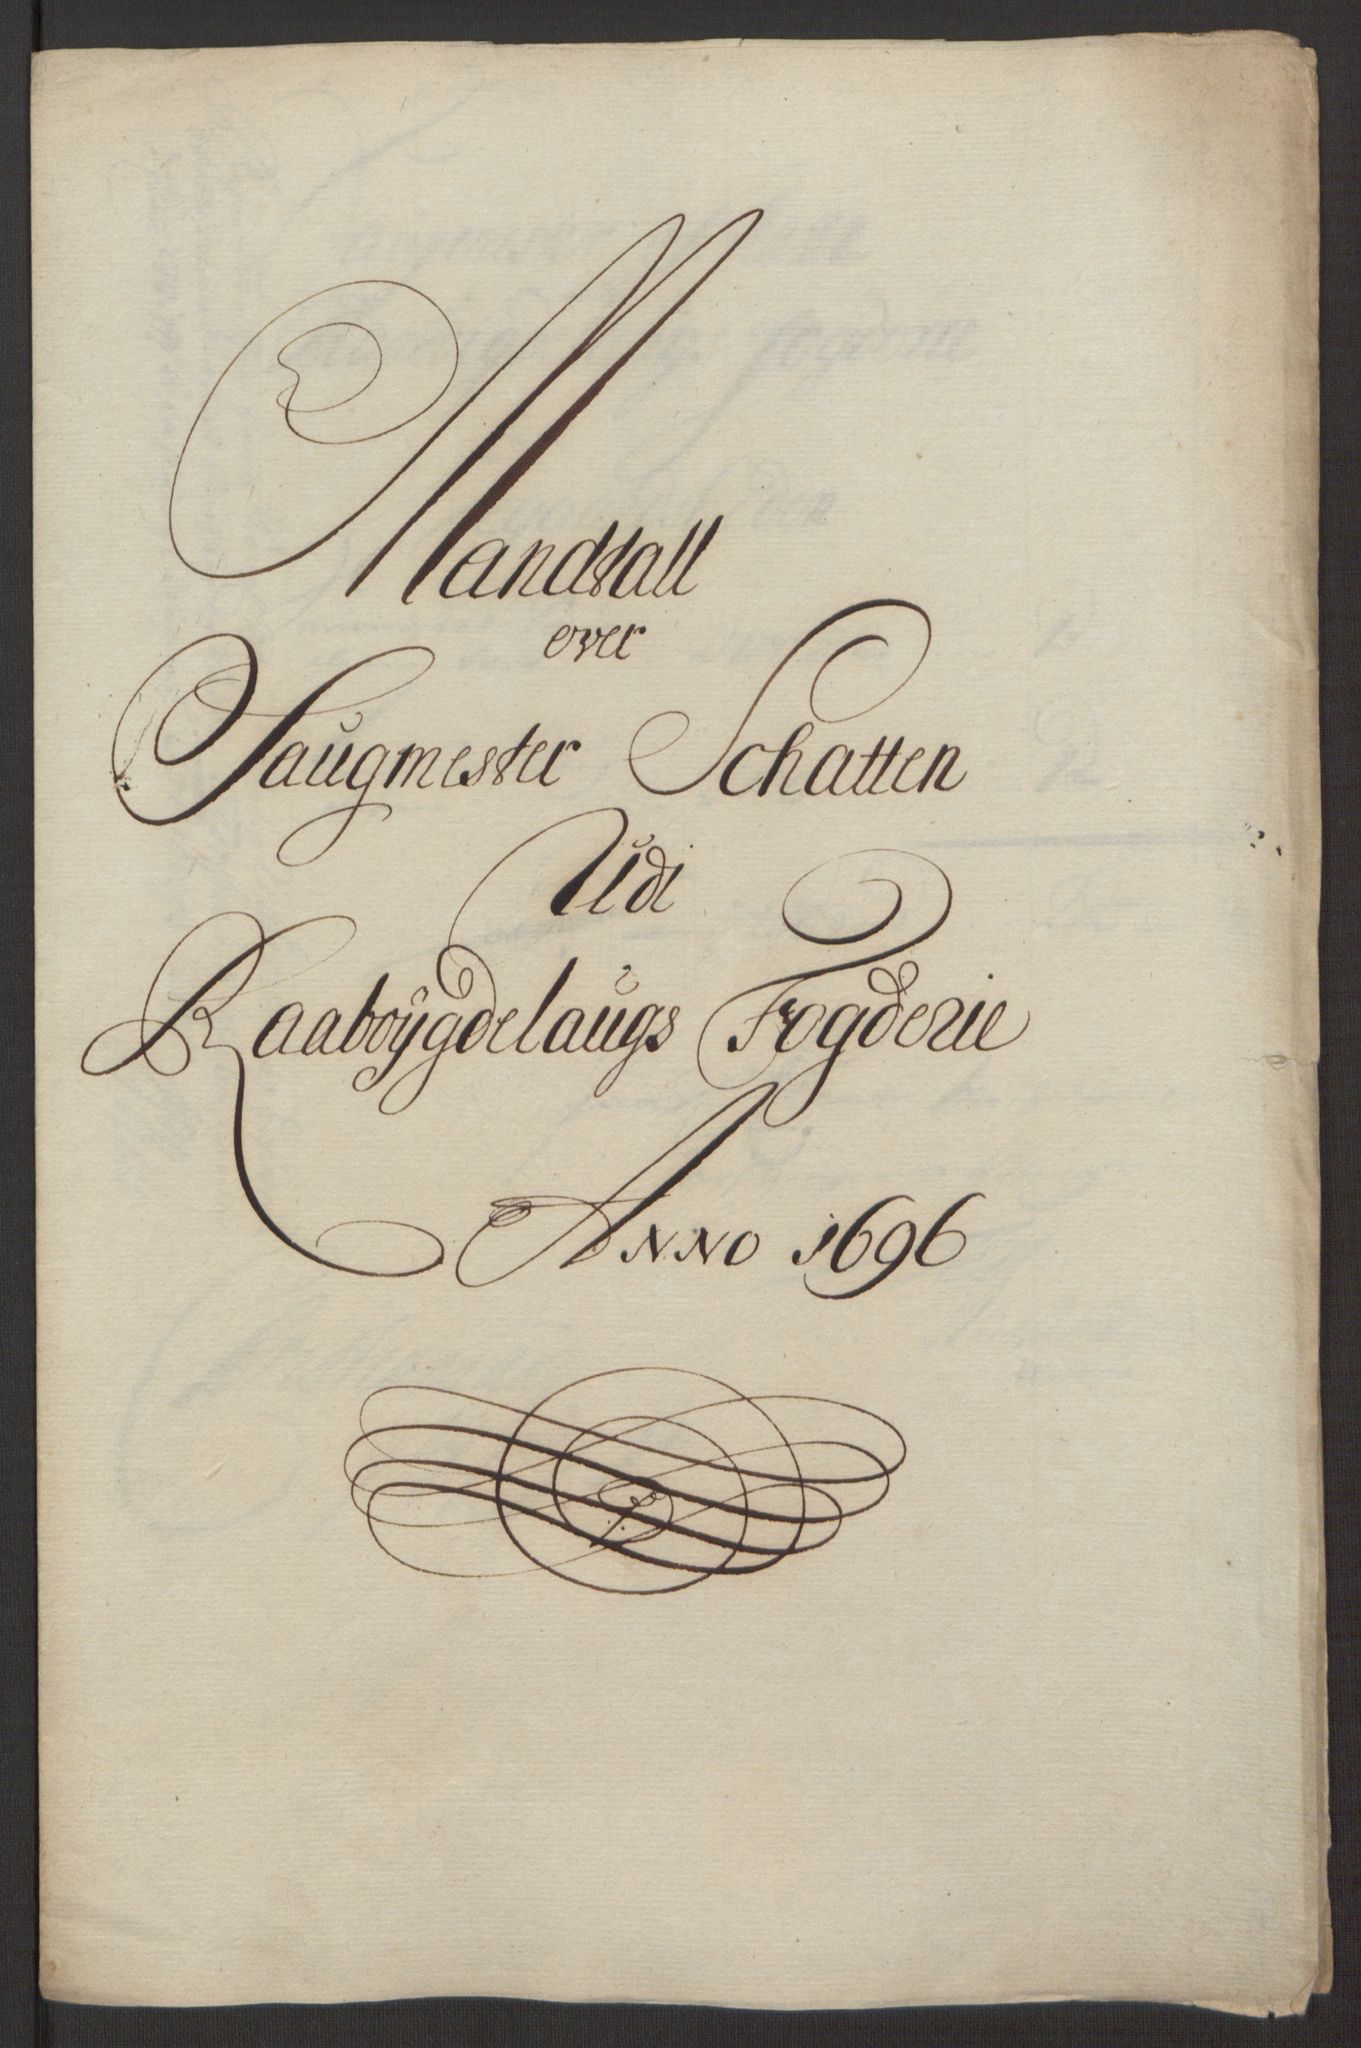 Mandtall
over
Saugmester Schatten
Udi
Raaböÿgdelaugs Fogderie
Anno 1696